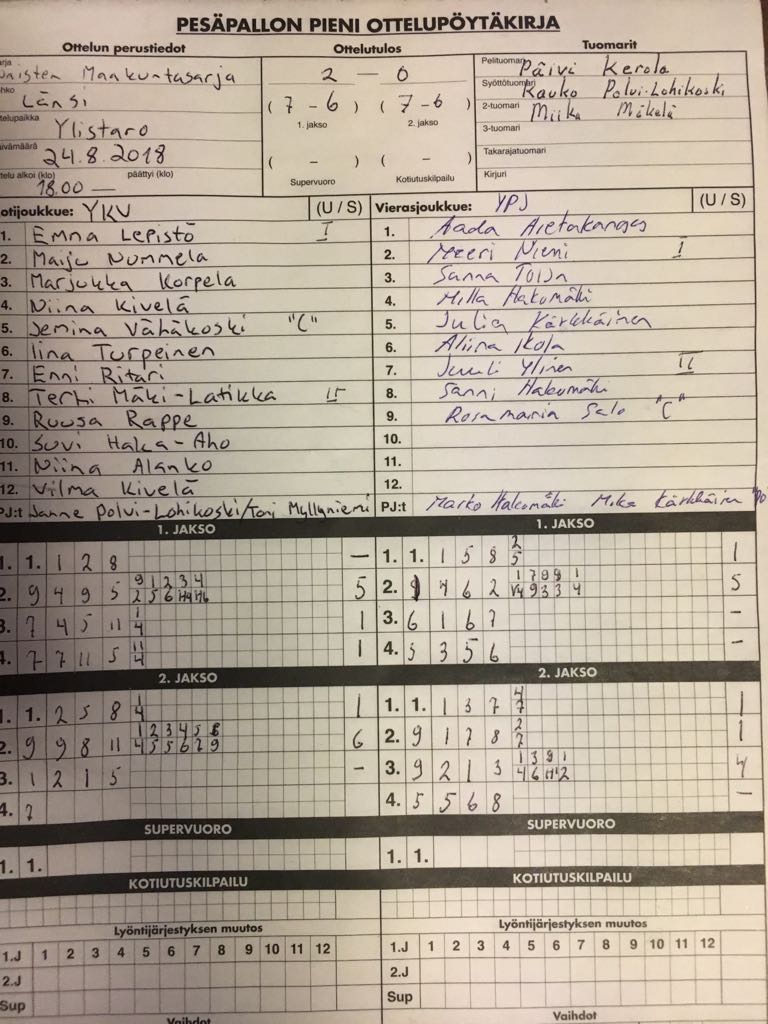 PESÄPALLON PIENI OTTELUPÖYTÄKIRJA
Ottelun perustiedot
Ottelutulos
Tuomarit
Maakuntasarja
Länsi
Ylistaro
24.8.2018
telu alkoi (klo) päättyi (klo)
18.00 —
2 – 0
(7 - 6) (7 - 6)
1. jakso 2. jakso
( - ) ( - )
Supervuoro Kotiutuskilpailu
Pelituomari Päivi Kerola
Syöttötuomari Kauko Polvi-Lohikoski
2-tuomari Miika Mäkelä
3-tuomari
Takarajatuomari
Kirjuri
otijoukkue: YKV (U / S)
1. Emna Lepistö I
2. Maiju Nummela
3. Marjukka Korpela
4. Niina Kivelä
5. Jemina Vähäkoski "C"
6. Iina Turpeinen
7. Enni Ritari
8. Terhi Mäki-Latikka II
9. Ruusa Rappe
10. Suvi Haka-Aho
11. Niina Alanko
12. Vilma Kivelä
PJ:t Janne Polvi-Lohikoski/Toni Myllyniemi
Vierasjoukkue: YPJ (U / S)
1. Aada
2. Meeri Niemi I
3. Sanna
4. Milla Hakomäki
5. Julia Kärkkäinen
6. Aliina Ikola
7. Juuli Ylinen II
8. Sanni Hakomäki
9. Rosamaria Salo "C"
10.
11.
12.
PJ:t Marko Hakomäki Mika Kärkkäinen
1. JAKSO
1. 1. 1 2 8 —
2. 9 4 9 5 5
3. 7 4 5 11 1 4 1
4. 7 7 11 5 11 4 1
1. JAKSO
1. 1. 1 5 8 2 5 1
2. 9 4 6 2 5
3. 6 1 6 7 –
4. 5 3 5 6 –
2. JAKSO
1. 1. 2 5 8 1 4 1
2. 9 9 8 11 6
3. 1 2 1 5 –
4. 7
2. JAKSO
1. 1. 1 3 7 4 7 1
2. 9 1 7 8 2 7 1
3. 9 2 1 3 4
4. 5 5 6 8 –
SUPERVUORO
1. 1.
SUPERVUORO
1. 1.
KOTIUTUSKILPAILU
KOTIUTUSKILPAILU
Lyöntijärjestyksen muutos
1.J 1 2 3 4 5 6 7 8 9 10 11 12
2.J
Sup
Vaihdot
Lyöntijärjestyksen muutos
1.J 1 2 3 4 5 6 7 8 9 10 11 12
2.J
Sup
Vaihdot